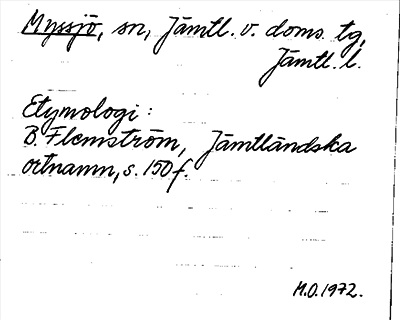 Myssjö, sn, Jämtl. v. doms. tg,
Jämtl. l.
Etymologi :
B. Flemström, Jämtländska
ortnamn, s. 150 f.
M.O. 1972.